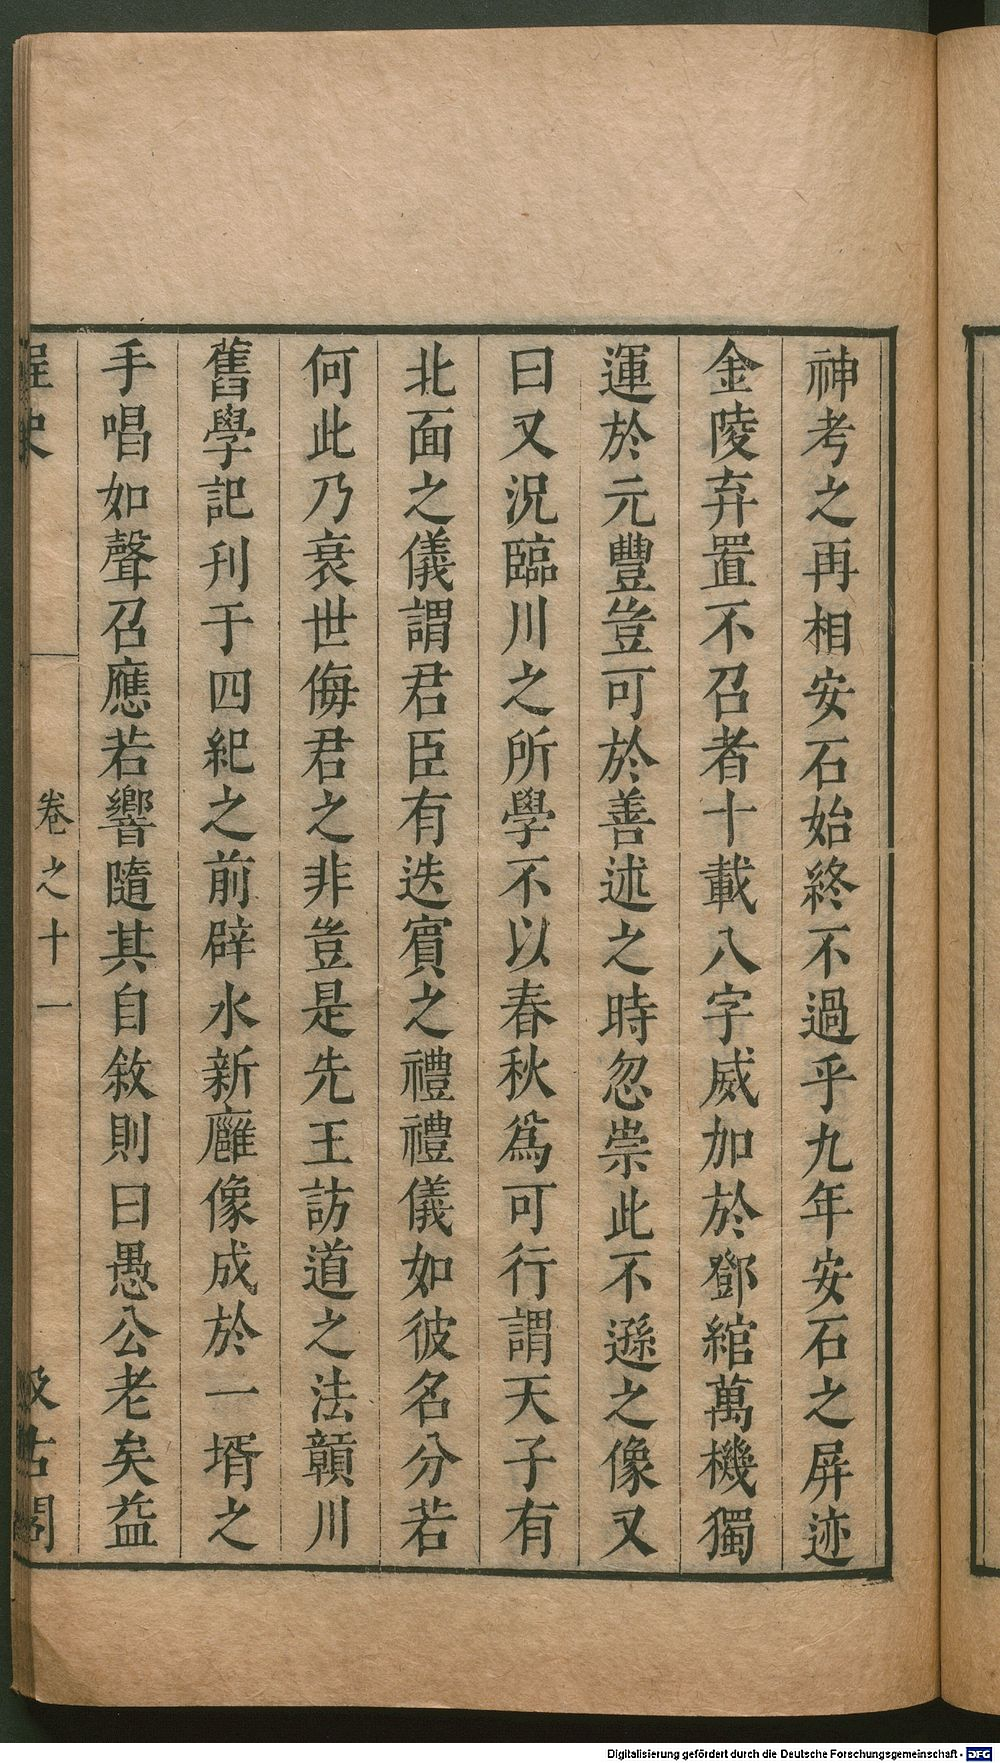 神考之再相安石始終不過乎九年安石之屏迹
金陵弃置不召者十載八字威加於鄧綰萬機獨
運於元豐豈可於善述之時忽崇此不遜之像又
曰又況臨川之所學不以春秋爲可行謂天子有
北面之儀謂君臣有迭賓之禮禮儀如彼名分若
何此乃衰世侮君之非豈是先王訪道之法贑川
舊學記刊于四紀之前辟水新廱像成於一壻之
手唱如聲召應若響隨其自敘則曰愚公老矣益
桯史 卷之十一 汲古閣
Digitalisierung gefördert durch die Deutsche Forschungsgemeinschaft - DFG